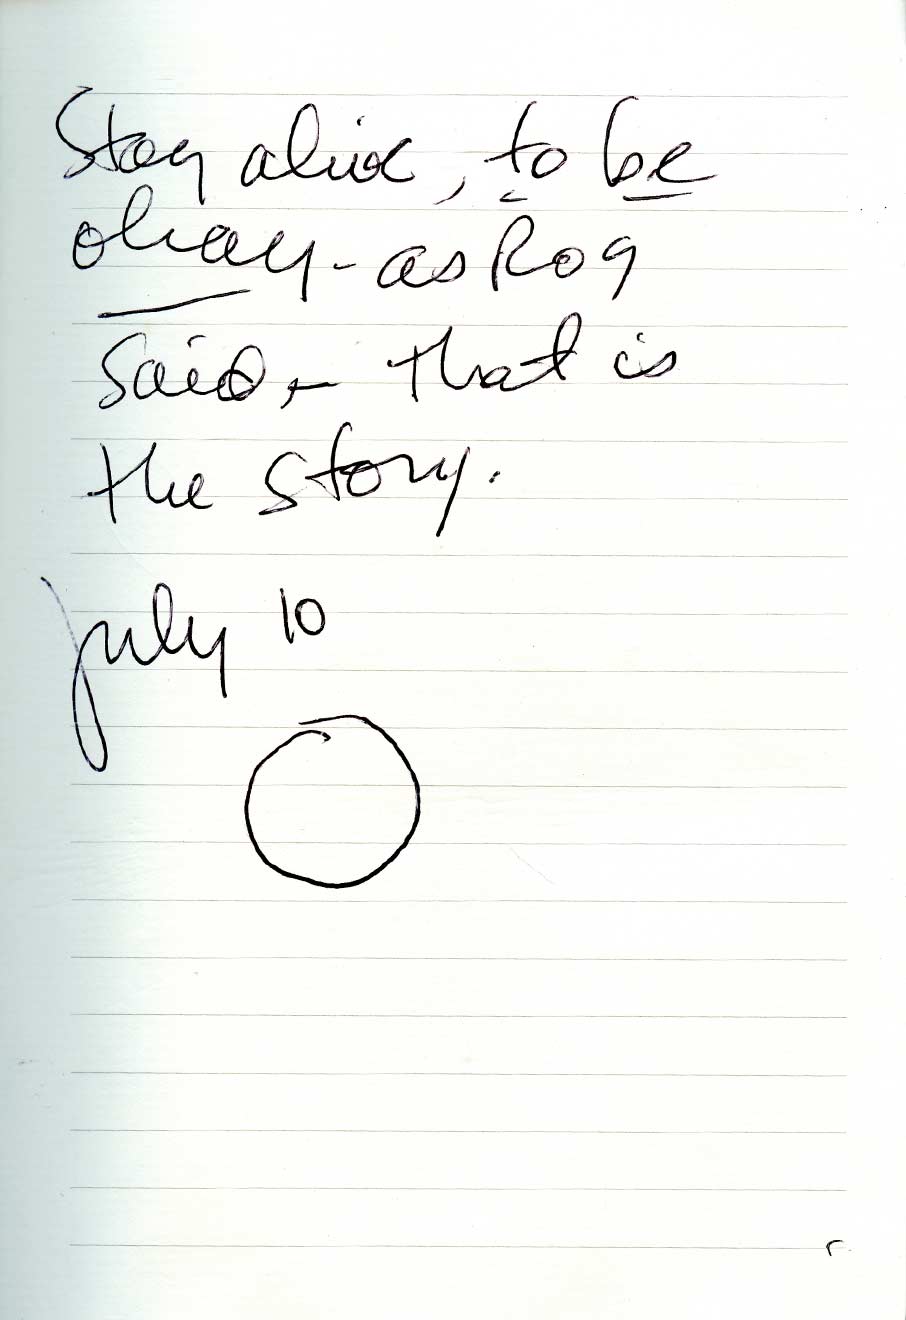 Stay alive, to be
okay - as Rog
said, - that is
the story.
july 10